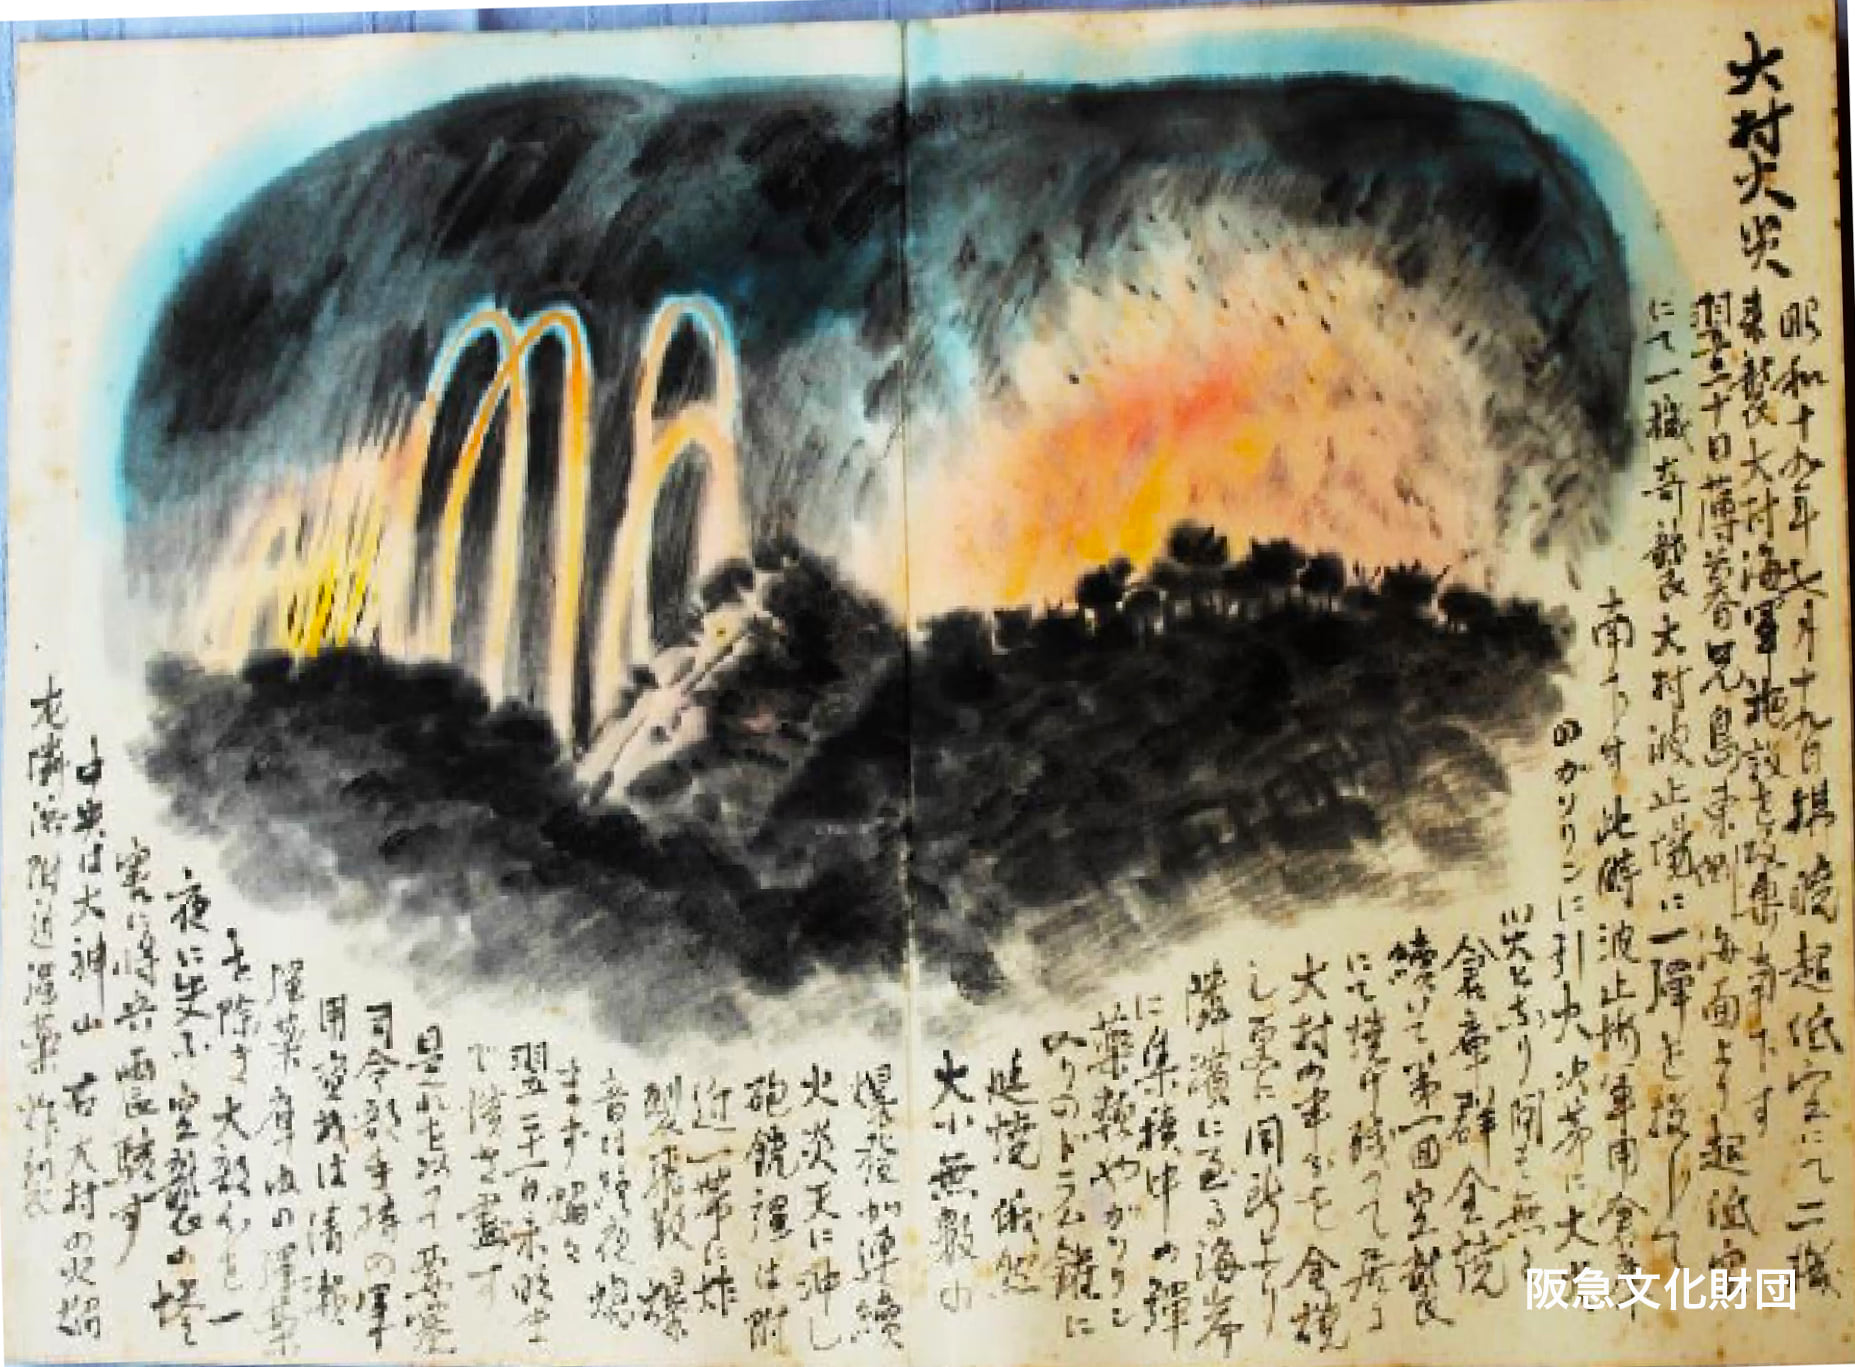 大村火災
昭和十九年七月十九日払暁超低空にて二機
来襲大村海軍施設を攻撃南下す
翌二十日薄暮兄島東側海面より超低空
にて一機奇襲大村波止場に一弾を投じて
南下す此時波止場軍用倉庫
のガソリンに引火次第に大火
災となり間も無く
倉庫群全焼
続いて第一回空襲
にて焼け残って居る
大村の家も全焼
し更に同所より
隣濱に至る海岸
に集積中の弾
薬類やガソリン
入りのドラム罐に
延焼俄然
大小無数の
爆発が連続
火炎天に沖し
砲銃弾は附
近一帯に炸
裂飛散爆
音は終夜
翌二十一日未明
で焼き尽す
是れを以て
司令部手持の軍
用
弾薬庫内の弾薬
を除き大部分を一
夜に失ふ空襲の
害に将兵驚す
中央は大神山右大村の火焔
左 附近弾薬炸裂
阪急文化財団